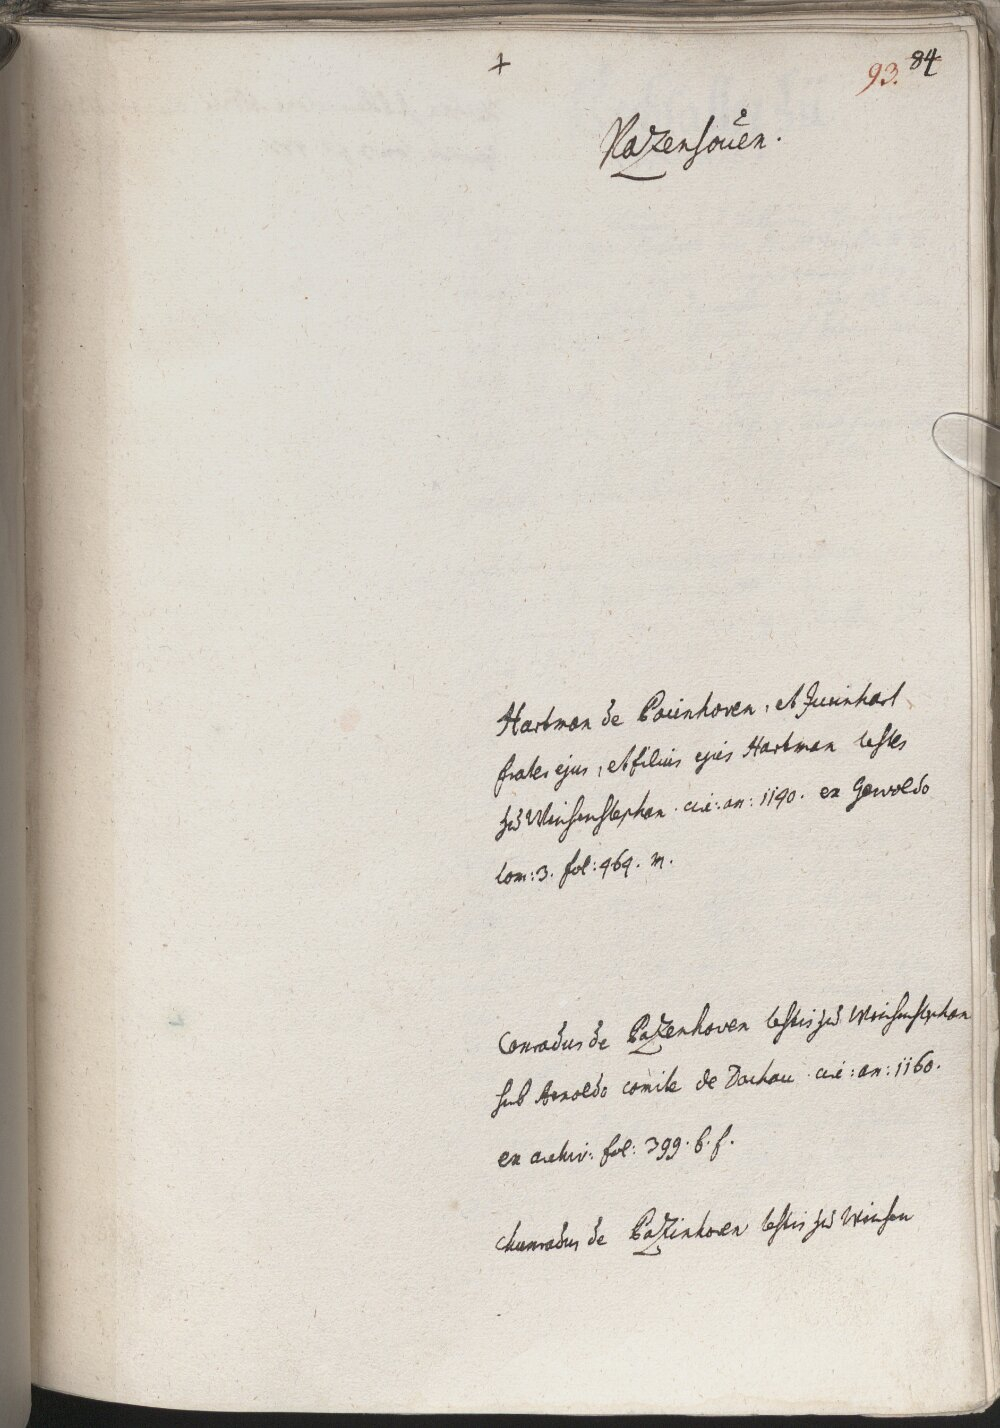 +
93. 84
Pazenhoven.
Hartman de Pouinhoven, et
frater ejus, et filius ejus Hartman testes
zů Weihenstephan. circ: an: 1190. ex Gewoldo
tom: 3. fol: 464. m.
Conradus de Pazenhoven testis zů Weihenstephan
sub Arnoldo comite de Dachau circ: an: 1160.
ex archiv: fol: 399. b. f.
Chunradus de Pazinhoven testis zů Weihen